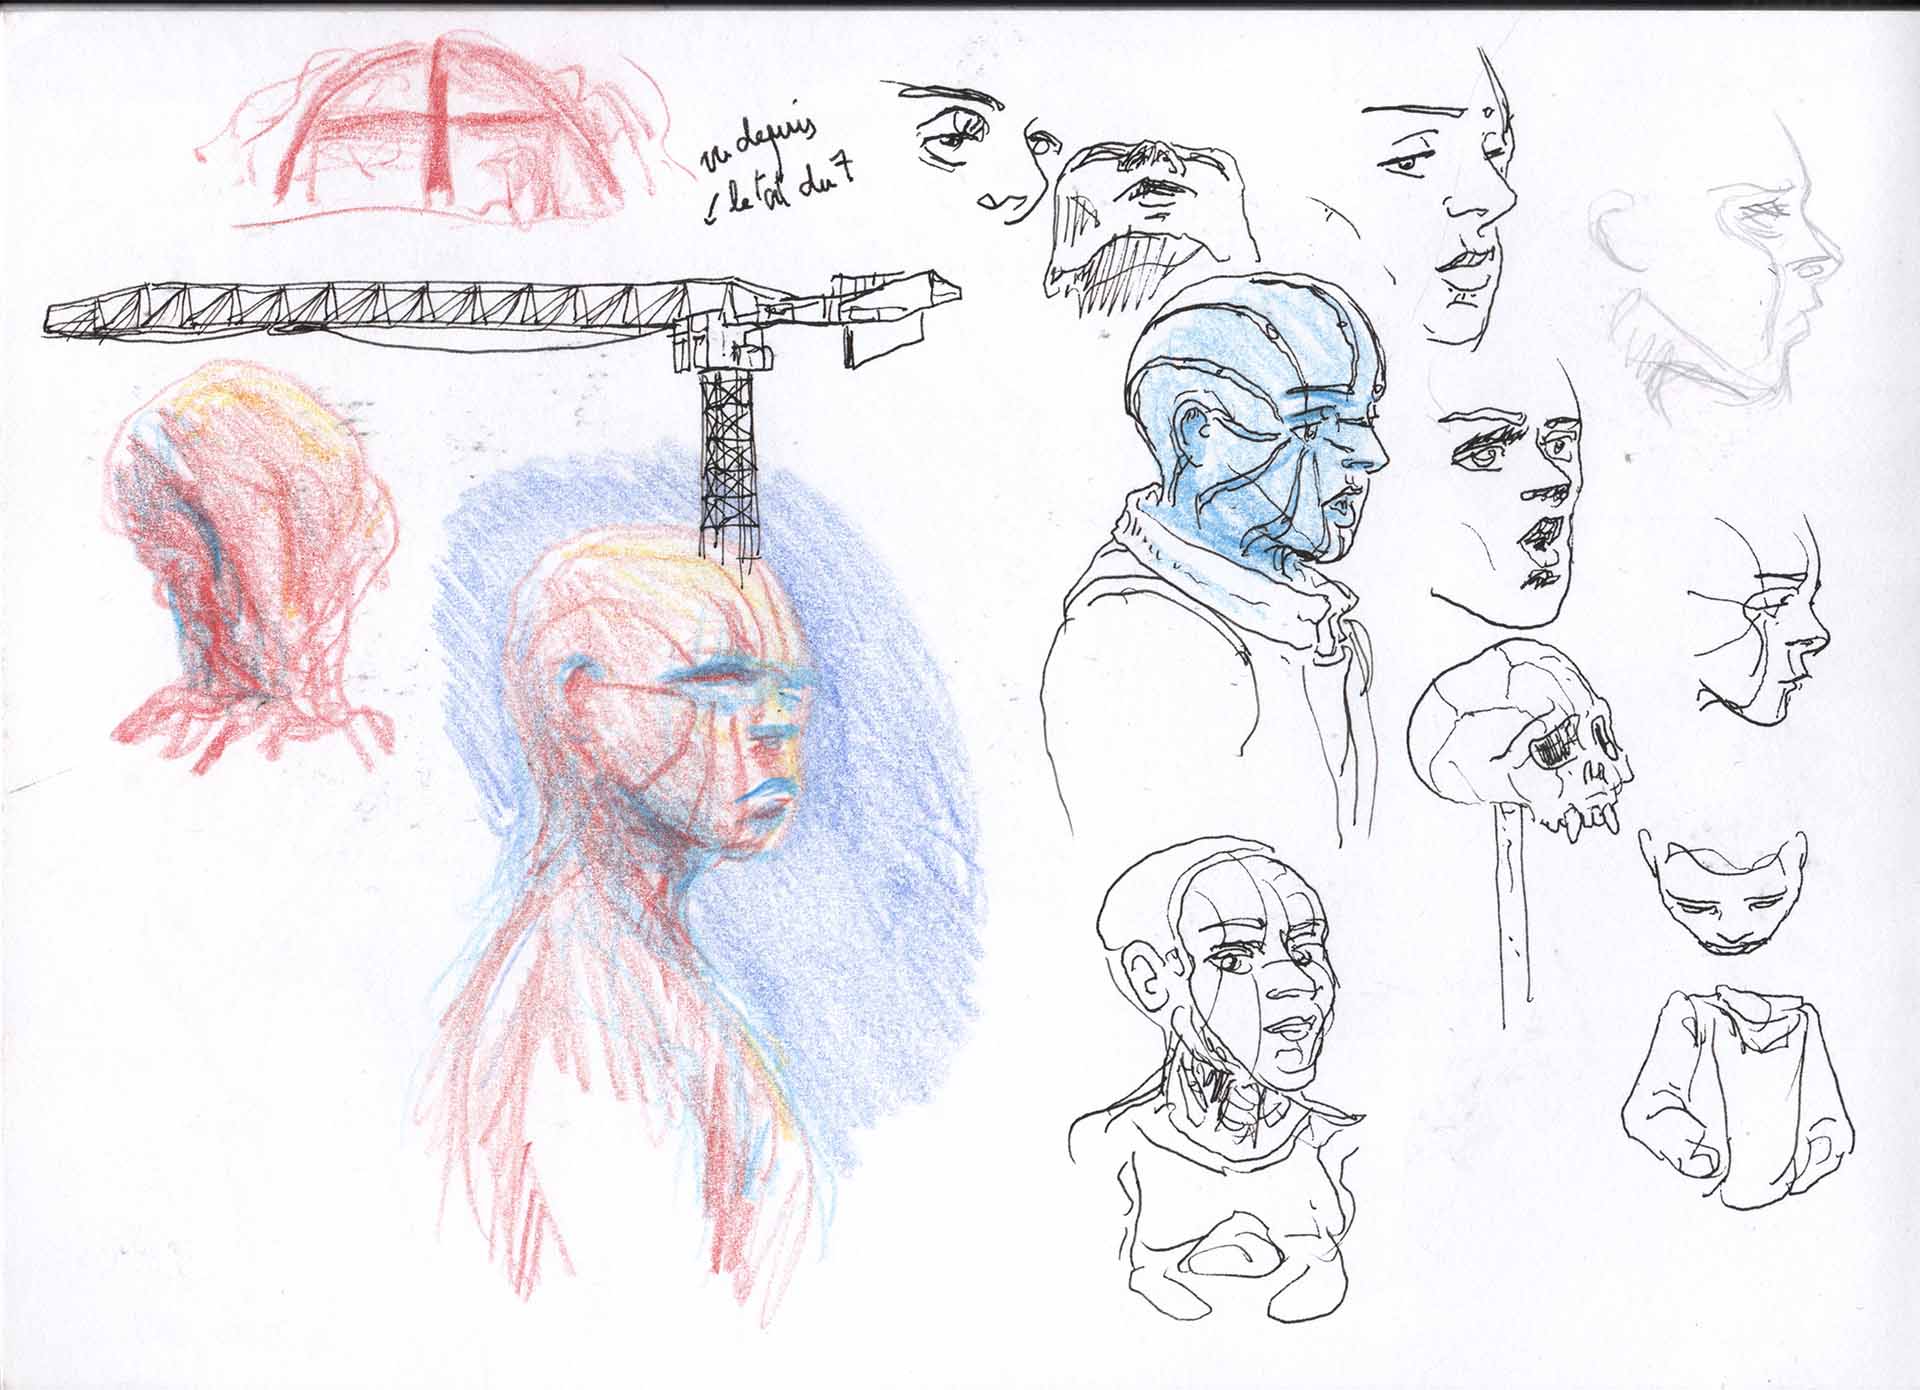 vu depuis
↙ le toit du 7